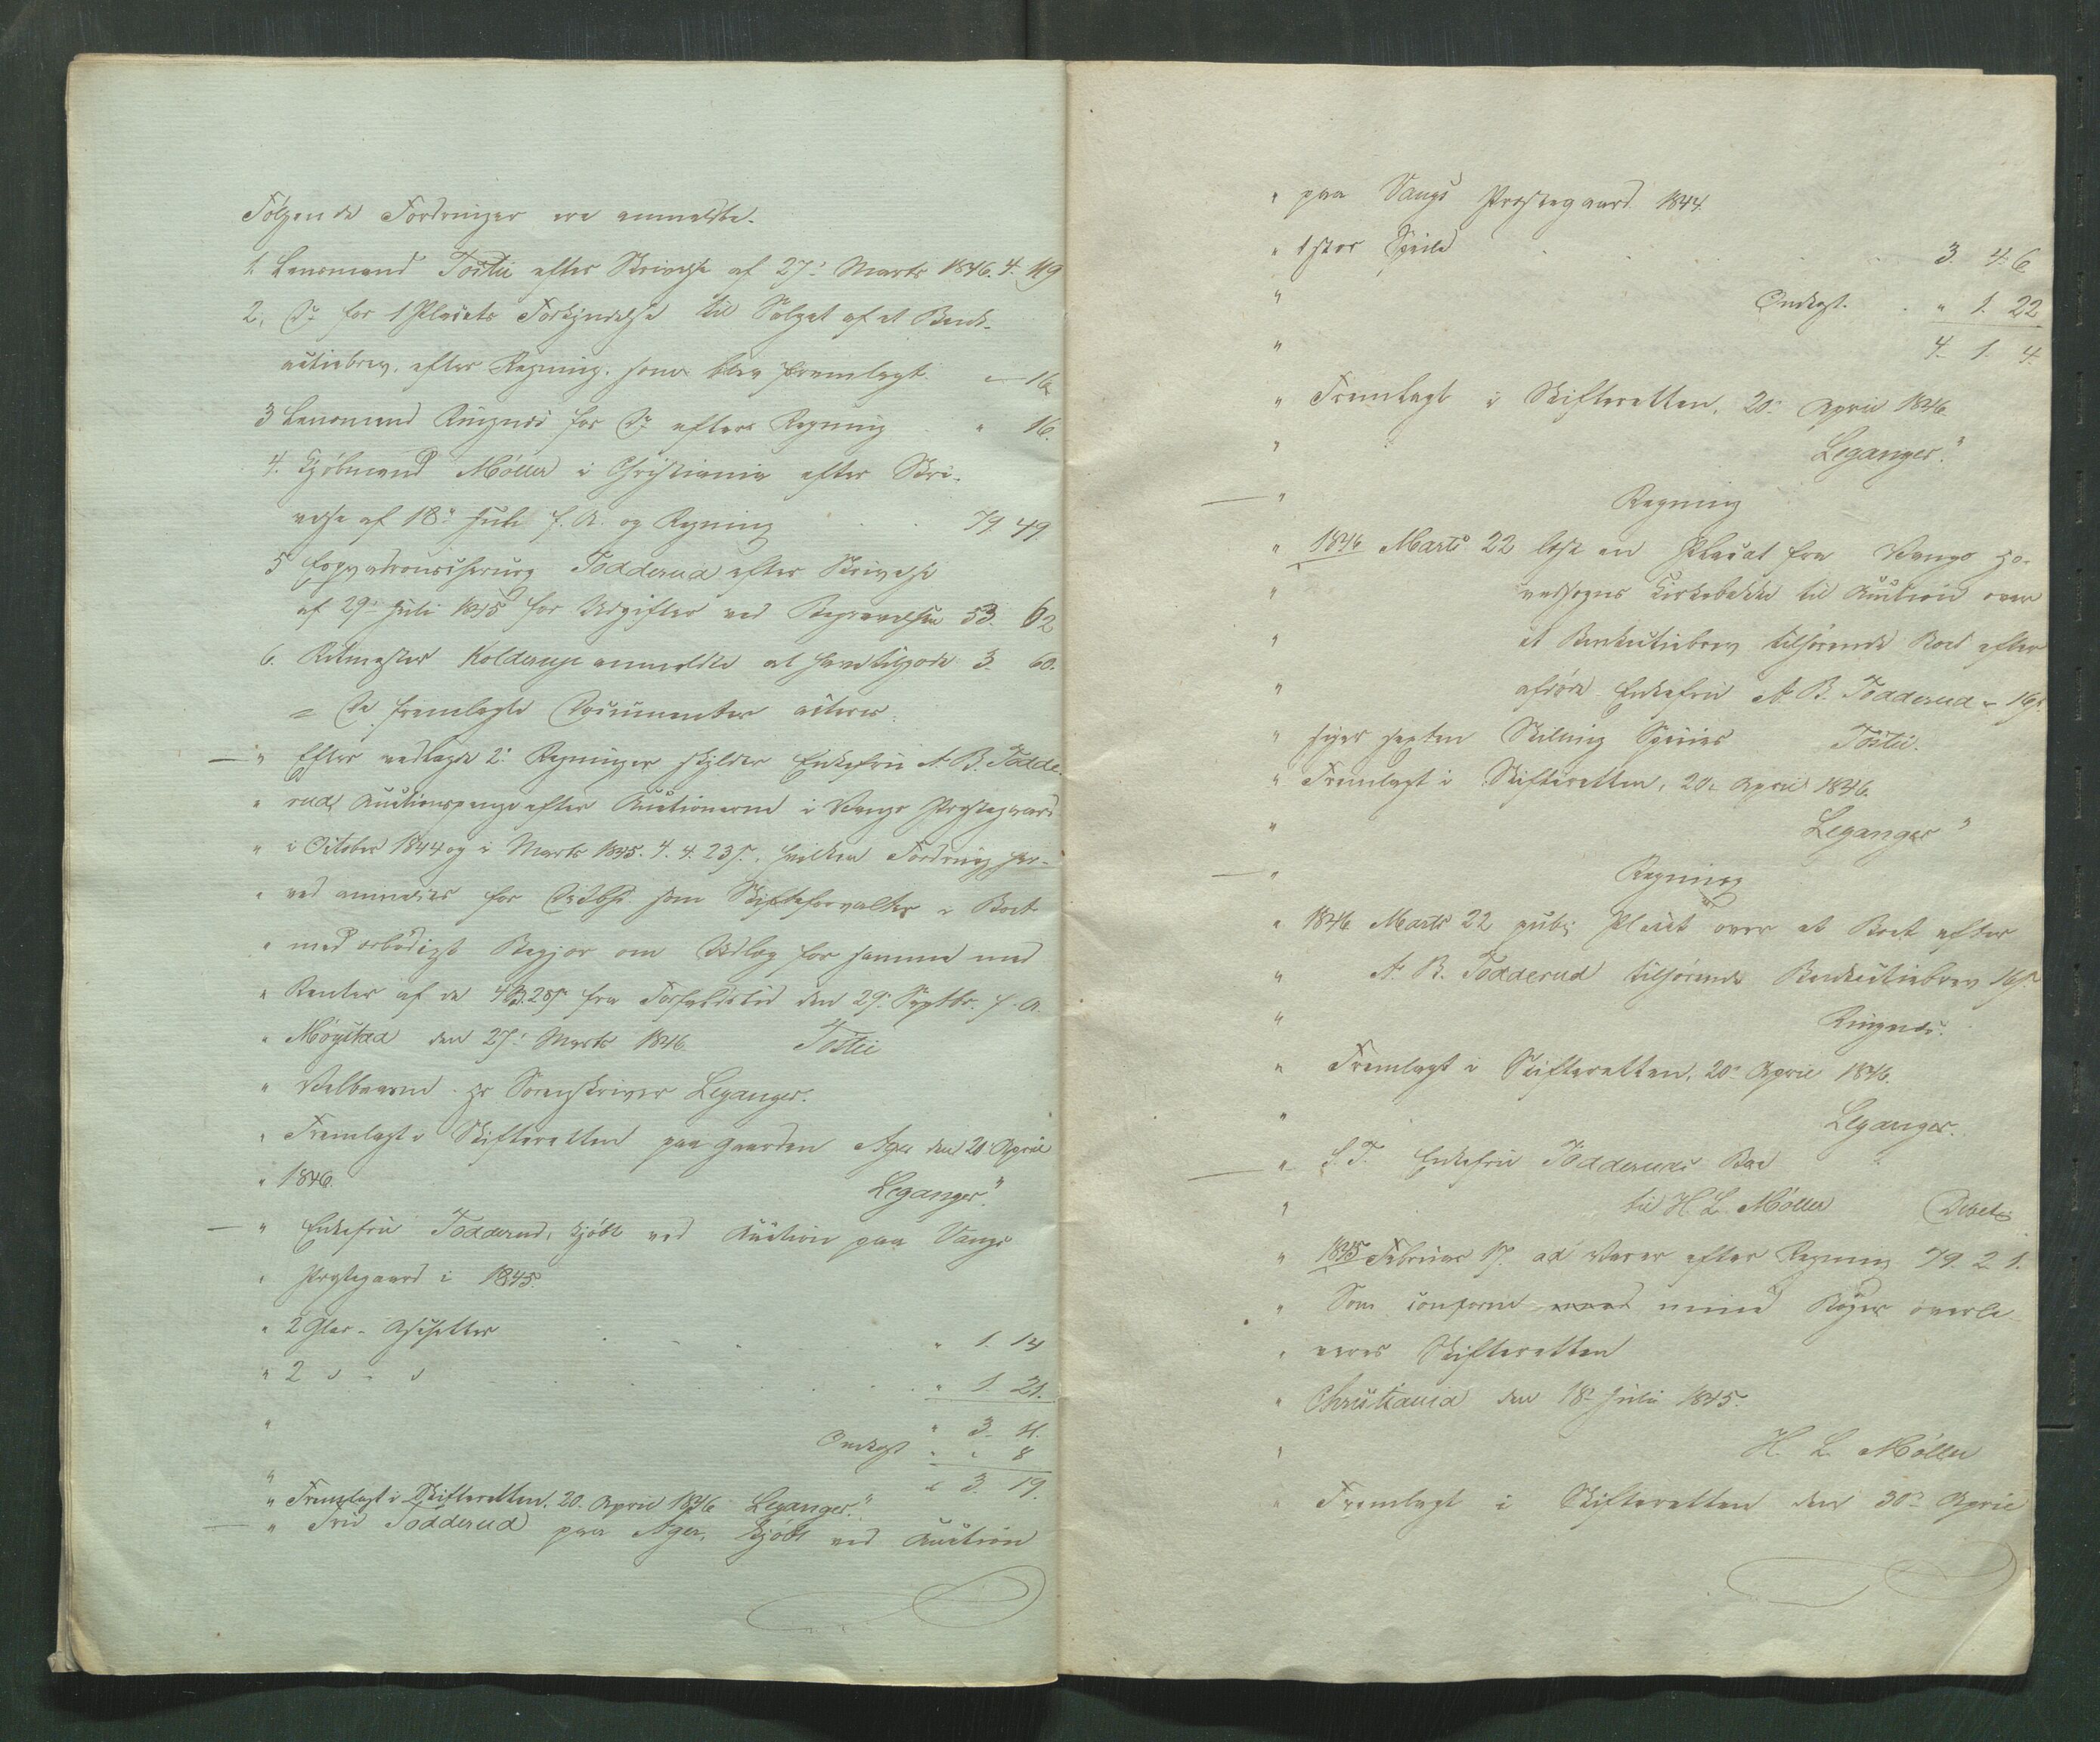 Følgende Fordringer ere anmeldte.
1. Lensmand Tostie efter Skrivelse af 27de Marts 1846. 4. 119
2. Do for 1 Placats Forkyndelse til Salget af et Bank-
actiebrev, efter Regning, som blev fremlagt. " 16
3 Lensmand Ringnes for Do efter Regning " 16.
4. Kjøbmand Møller i Christiania efter Skri-
velse af 18de Juli f. A. og Regning 79. 49.
5 Todderud efter Skrivelse
af 29de Juli 1845 for Udgifter ved Begravelsen 53. 62
6. Ritmester Kolderup anmeldte at have tilgode 3. 60.
= De fremlagte Documenter acteres:
— " Efter vedlagde 2de Regninger skylder Enkefru A. B. Todde-
" rud Auctionspenge efter Auctionerne i Vangs Præstegaard
" i October 1844 og i Marts 1845. 4. 4. 23 s., hvilken Fordring her-
" ved anmeldes for som Skifteforvalter i Boet
" med ærbødigst Begjær om Udlæg for samme med
" Renter af de fra Forfaldstid den 29de Septbr. f. A.
" Møystad den 27de Marts 1846. Tostie
" Velbaarne Hr Sorenskriver Leganger.
" Fremlagt i Skifteretten paa Gaarden Ager den 20de April
" 1846. Leganger."
— " Enkefru Todderud, kjøbt ved Auction paa Vangs
" Præstegaard i 1845.
" 2 Glas-Assietter " 1. 14
" 2 " - " " 1. 21.
" " 3. 11.
" Omkost " " 8
" 3. 19.
" Fremlagt i Skifteretten, 20. April 1846 Leganger."
— " Fru Todderud paa Ager, kjøbt ved Auction
" paa Vangs Præstegaard 1844.
" 1 stor Speil 3. 4. 6
" Omkost. " 1. 22
" 4. 1. 4.
" Fremlagt i Skifteretten, 20de April 1846
" Leganger."
— " Regning
" 1846 Marts 22 læst en Placat fra Vangs Ho-
" vedsogns Kirkebakke til Auction over
" et Bankactiebrev tilhørende Boet efter
" afdøde Enkefru A. B. Todderud " 16 s.
" siger sexten Skilling Species Tostie.
" Fremlagt i Skifteretten, 20de April 1846.
" Leganger"
— " Regning
" 1846 Marts 22 publ. Placat over et Boet efter
" A. B. Todderud tilhørende Bankactiebrev 16 s.
" Ringnes.
" Fremlagt i Skifteretten, 20de April 1846.
" Leganger.
— " S. T. Enkefru Todderuds Bo
" til H. L. Møller Debet
" 1845 Februar 17. ad Varer efter Regning 79. 2. 1.
" Som conform med mine Bøger overle-
" veres Skifteretten
" Christiania den 18de Juli 1845.
" H. L. Møller
" Fremlagt i Skifteretten den 30te April